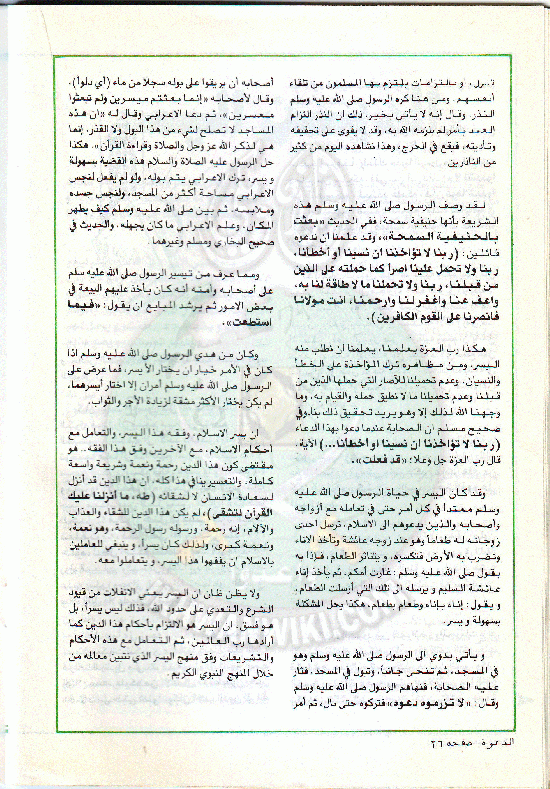 تنزل، أو بالتزامات يلتزم بها المسلمون من تلقاء
أنفسهم. ومن هنا كره الرسول صلى الله عليه وسلم
النذر. وقال إنه لا يأتي بخير. ذلك ان النذر التزام
العبد بأمر لم يلزمه الله به، وقد لا يقوى على تحقيقه
وتأديته، فيقع في الحرج، وهذا نشاهده اليوم من كثير
من الناذرين.
لـقـد وصف الرسول صلى الله عليه وسلم هذه
الشريعة بأنها حنيفية سمحة، ففي الحديث «بعثت
بالحنيفية السمحة»، وقد علمنا أن ندعوه
قائلين: (ربنا لا تؤاخذنا ان نسينا أو أخطأنا،
ربنا ولا تحمل علينا اصراً كما حملته على الذين
من قبلنا، ربنا ولا تحملنا ما لا طاقة لنا به،
واعف عنا واغفر لنا وارحمنا، انت مولانا
فانصرنا على القوم الكافرين).
هكذا رب العزة يعلمنا، يعلمنا ان نطلب منه
اليسر، ومن مظاهره ترك المؤاخذة على الخطأ
والنسيان. وعدم تحميلنا للآصار التي حملها الذين من
قبلنا وعدم تحميلنا ما لا نطيق حمله والقيام به، وما
وجهنا الله لذلك إلا وهو يريد تحقيق ذلك بنا، وفي
صحيح مسلم ان الصحابة عندما دعوا بهذا الدعاء
(ربنا لا تؤاخذنا ان نسينا أو أخطأنا...) الآية،
قال رب العزة جل وعلا: «قد فعلت».
وقد كان اليسر في حياة الرسول صلى الله عليه
وسلم ممتداً في كل أمر حتى في تعامله مع أزواجه
وأصحابه والذين يدعوهم الى الاسلام، ترسل احدى
زوجاته له طعاماً وهو عند زوجه عائشة وتأخذ الاناء
وتضرب به الأرض فتكسره، ويتناثر الطعام، فإذا به
يقول صلى الله عليه وسلم: غارت أمكم. ثم يأخذ إناء
عائشة السليم ويرسله الى تلك التي أرسلت الطعام،
ويقول: إناء بإناء وطعام بطعام، هكذا يحل المشكلة
بسهولة ويسر.
ويأتي بدوي الى الرسول صلى الله عليه وسلم وهو
في المسجد، ثم تنحى جانباً، وتبول في المسجد، فثار
عليه الصحابة، فنهاهم الرسول صلى الله عليه وسلم
وقال: «لا تزرموه دعوه» فتركوه حتى بال، ثم أمر
أصحابه أن يريقوا على بوله سجلا من ماء (أي دلواً)،
وقال لأصحابه «إنما بعثتم ميسرين ولم تبعثوا
معسرين»، ثم دعا الاعرابي وقال له «ان هذه
المساجد لا تصلح لشيء من هذا البول ولا القذر، إنما
هي لذكر الله عز وجل والصلاة وقراءة القرآن». هكذا
حل الرسول عليه الصلاة والسلام هذه القضية بسهولة
ويسر، ترك الاعرابي يتم بوله، ولو لم يفعل لنجس
الاعرابي مساحة أكثر من المسجد، ولنجس جسده
وملابسه. ثم بين صلى الله عليه وسلم كيف يطهر
المكان. وعلم الاعرابي ما كان يجهله. والحديث في
صحيح البخاري ومسلم وغيرهما.
ومما عرف من تيسير الرسول صلى الله عليه وسلم
على أصحابه وأمته أنه كان يأخذ عليهم البيعة في
بعض الأمور ثم يرشد المبايع ان يقول: «فيما
استطعت».
وكان من هدي الرسول صلى الله عليه وسلم اذا
كان في الأمر خيار ان يختار الأيسر، فما عرض على
الرسول صلى الله عليه وسلم أمران إلا اختار أيسرهما.
لم يكن يختار الأكثر مشقة لزيادة الأجر والثواب.
ان يسر الاسلام. وفقه هذا اليسر، والتعامل مع
أحكام الاسلام، مع الآخرين وفق هذا الفقه.. هو
مقتضى كون هذا الدين رحمة ونعمة وشريعة واسعة
كاملة. والتعسير ينافي هذا كله، ان هذا الدين قد أنزل
لسعادة الانسان لا لشقائه (طه، ما أنزلنا عليك
القرآن لتشقى)، لم يكن هذا الدين للشقاء والعذاب
والآلام، إنه رحمة. ورسوله رسول الرحمة، وهو نعمة،
ونعمة كبرى، ولذلك كان يسراً، وينبغي للعاملين
بالاسلام ان يفقهوا هذا اليسر، ويتعاملوا معه.
ولا يظن ظان ان اليسر يعني الانفلات من قيود
الشرع والتعدي على حدود الله، فذلك ليس يسراً، بل
هو فسق. ان اليسر هو الالتزام بأحكام هذا الدين كما
أرادها رب العالمين، ثم التعامل مع هذه الأحكام
والتشريعات وفق منهج اليسر الذي تتبين معالمه من
خلال المنهج النبوي الكريم.
الدعوة - صفحة ٢٦